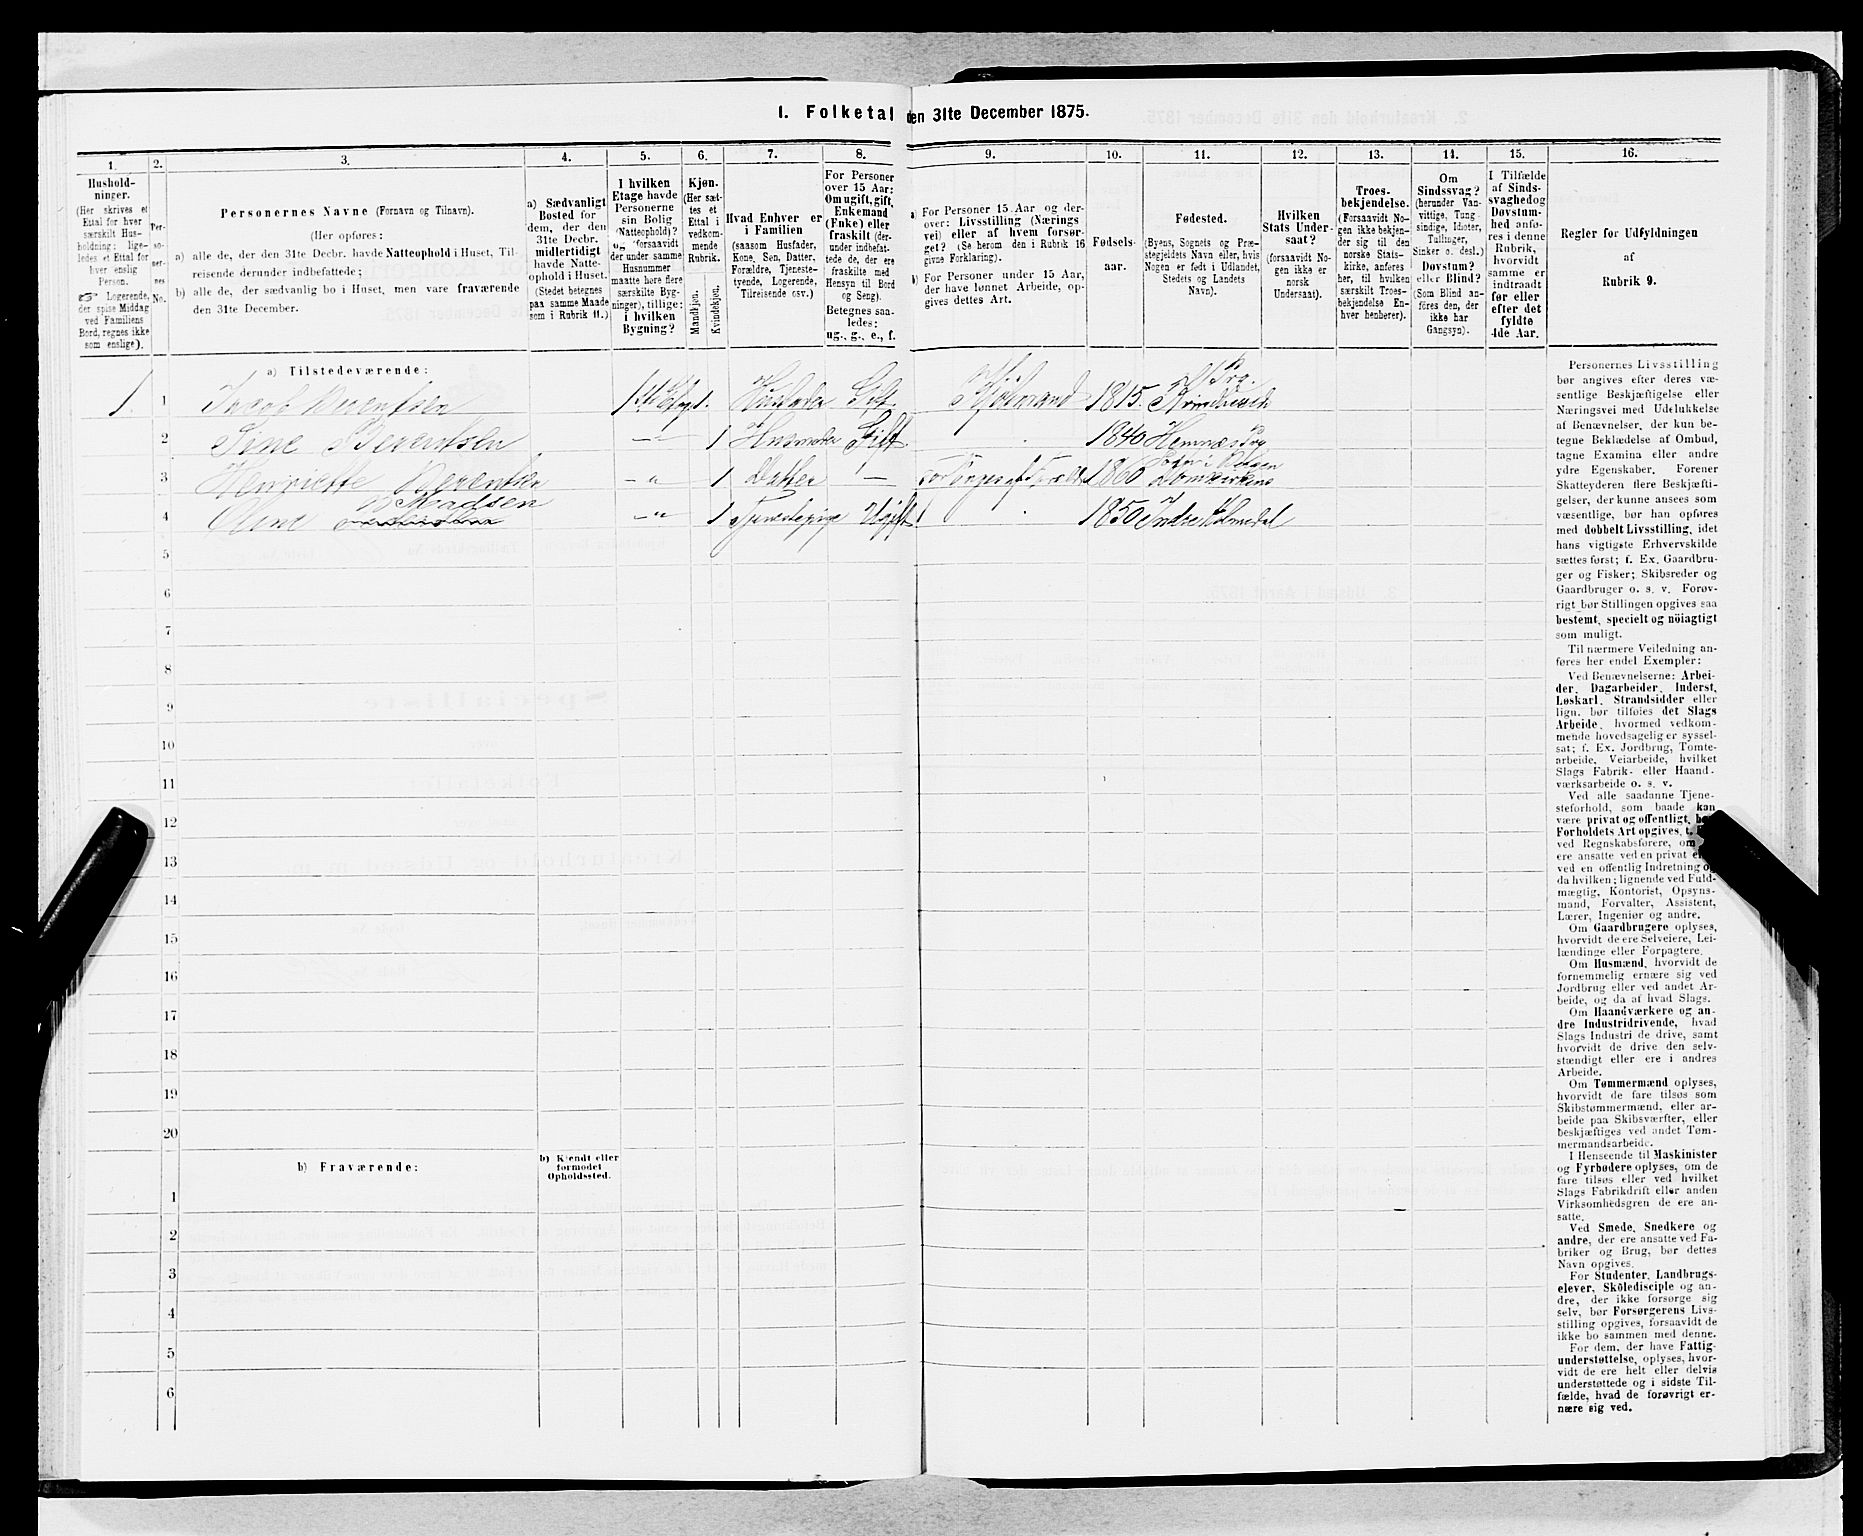 1. Folketal den 31te December 1875.
1.
2.
3.
4.
5.
6.
7.
8.
9.
10.
11.
12.
13.
14.
15.
16.
Hushold-
ninger.
(Her skrives et
Ettal for hver
særskilt Hus-
holdning; lige-
ledes et Ettal for
hver enslig
Person.
☞ Logerende,
der spise Middag
ved Familiens
Bord, regnes ikke
som enslige).
Per-
so-
ner-
nes
No.
Personernes Navne (Fornavn og Tilnavn).
(Her opføres:
a) alle de, der den 31te Decbr. havde Natteophold i Huset, Til-
reisende derunder indbefattede;
b) alle de, der sædvanlig bo i Huset, men vare fraværende
den 31te December.
a) Sædvanligt
Bosted for
dem, der den
31te Decbr.
midlertidigt
havde Natte-
ophold i Huset.
(Stedet betegnes
paa samme Maade
som i Rubrik 11.)
I hvilken
Etage havde
Personerne
sin Bolig
(Natteophold)?
og (forsaavidt
der under samme
Husnummer
maatte høre flere
særskilte Byg-
ninger), tillige:
i hvilken
Bygning?
Kjøn.
(Her sæt-
tes et
Ettal i
vedkom-
mende
Rubrik.
Mandkjøn.
Kvindekjøn.
Hvad Enhver er
i Familien
(saasom Husfader,
Kone, Søn, Datter,
Forældre, Tjeneste-
tyende, Logerende,
Tilreisende osv.)
For Personer
over 15 Aar:
Om ugift, gift,
Enkemand
(Enke) eller
fraskilt (der-
under indbefat-
tede de, der ere
fraskilte med
Hensyn til Bord
og Seng).
Betegnes saa-
ledes:
ug., g., e., f.
a) For Personer 15 Aar og der-
over: Livsstilling (Nærings
vei) eller af hvem forsør-
get? (Se herom den i Rubrik 16
givne Forklaring).
b) For Personer under 15 Aar,
der have lønnet Arbeide, op-
gives dettes Art.
Fødsels-
aar.
Fødested.
(Byens, Sognets og Præ-
stegjeldets Navn eller, hvis
Nogen er født i Udlandet,
Stedets og Landets
Navn).
Hvilken
Stats Under-
saat?
(forsaavidt No-
gen ikke er
norsk
Undersaat).
Troes-
bekjendelse.
(Forsaavidt No-
gen ikke bekjen-
der sig til den
norske Stats-
kirke, anføres
her, til hvilken
særskilt Troes-
bekjendelse En-
hver henhører).
Om
Sindssvag?
(herunder Van-
vittige, Tung
sindige, Idioter,
Tullinger,
Sinker o. desl.)
Døvstum?
eller Blind?
(Som Blind an-
føres den, der
ikke har
Gangsyn).
I Tilfælde
af Sinds-
svaghed og
Døvstum-
hed anfø-
res i denne
Rubrik,
hvorvidt
samme er
indtraadt
før eller
efter det
fyldte
4de Aar.
Regler for Udfyldningen
af
Rubrik 9.
a) Tilstedeværende:
1. 1 Jacob Berentsen 1ste Etag 1. Husfader Gift 1815.
2 Sine Berentsen 1 Husmoder Gift 1840 Hemnæs
3 Henriette Berentsen 1 Datter 1860 Domkirkens
4 Oline Madsen 1 Tjenestepige Ugift 1850 Indre Holmedal
5
6
7
8
9
10
11
12
13
14
15
16
17
18
19
20
b) Fraværende:
b) Kjendt eller
formodet
Opholdssted.
1
2
3
4
5
6
Personernes Livsstilling
bør angives efter deres væ-
sentlige Beskjæftigelse eller
Næringsvei med Udelukkelse
af Benævnelser, der kun be-
tegne Beklædelse af Ombud,
tagne Examina eller andre
ydre Egenskaber. Forener
Skatteyderen flere Beskjæfti-
gelser, der kunne ansees som
væsentlige, bør han opføres
med dobbelt Livsstilling, idet
hans vigtigste Erhvervskilde
sættes først; f. Ex. Gaardbru-
ger og Fisker; Skibsreder og
Gaardbruger o. s. v. Forøv-
rigt bør Stillingen opgives saa
bestemt, specielt og nöiagtigt
som muligt.
Til nærmere Veiledning an-
føres her endel Exempler:
Ved Benævnelserne: Arbei-
der, Dagarbeider, Inderst,
Løskarl, Strandsidder eller
lign. bør tilføies det Slags
Arbeide, hvormed vedkom-
mende hovedsagelig er syssel-
sat; f. Ex. Jordbrug, Tomte-
arbeide, Veiarbeide, hvilket
Slags Fabrik- eller Haand-
værksarbeide o. s. v.
Ved alle saadanne Tjene-
steforhold, som baade kan
være privat og offentligt,
Forholdets Art opgives,
ved Regnskabsførere, om
ere ansatte ved en privat
ved en offentlig Indretning
da hvilken; lignende ved Fuld-
mægtig, Kontorist, Opsyns-
mand, Forvalter, Assistent,
Lærer, Ingeniør og andre.
Om Gaardbrugere oplyses,
hvorvidt de ere Selveiere, Lei-
lændinge eller Forpagtere.
Om Husmænd, hvorvidt de
fornemmelig ernære sig ved
Jordbrug eller ved andet Ar-
beide, og da af hvad Slags.
Om Haandværkere og an-
dre Industridrivende, hvad
Slags Industri de drive, samt
hvorvidt de drive den selv-
stændigt eller ere i andres
Arbeide.
Om Tømmermænd oplyses,
hvorvidt de fare tilsøs som
Skibstømmermænd, eller ar-
beide paa Skibsværfter, eller
beskjæftiges ved andet Tøm-
mermandsarbeide.
I Henseende til Maskinister
og Fyrbødere oplyses, om de
fare tilsøs eller ved hvilket
Slags Fabrikdrift eller anden
Virksomhedsgren de ere an-
satte.
Ved Smede, Snedkere og
andre, der ere ansatte ved Fa-
briker og Brug, bør dettes
Navn opgives.
For Studenter, Landbrugs-
elever, Skoledisciple og an-
dre, der ikke forsørge sig
selv, bør Forsørgerens Livs-
stilling opgives, forsaavidt de
ikke bo sammen med denne.
For dem, der have Fattig-
understøttelse, oplyses, hvor-
vidt de ere helt eller delvis
understøttede og i sidste Til-
fælde, hvad de forøvrigt er-
nære sig ved.